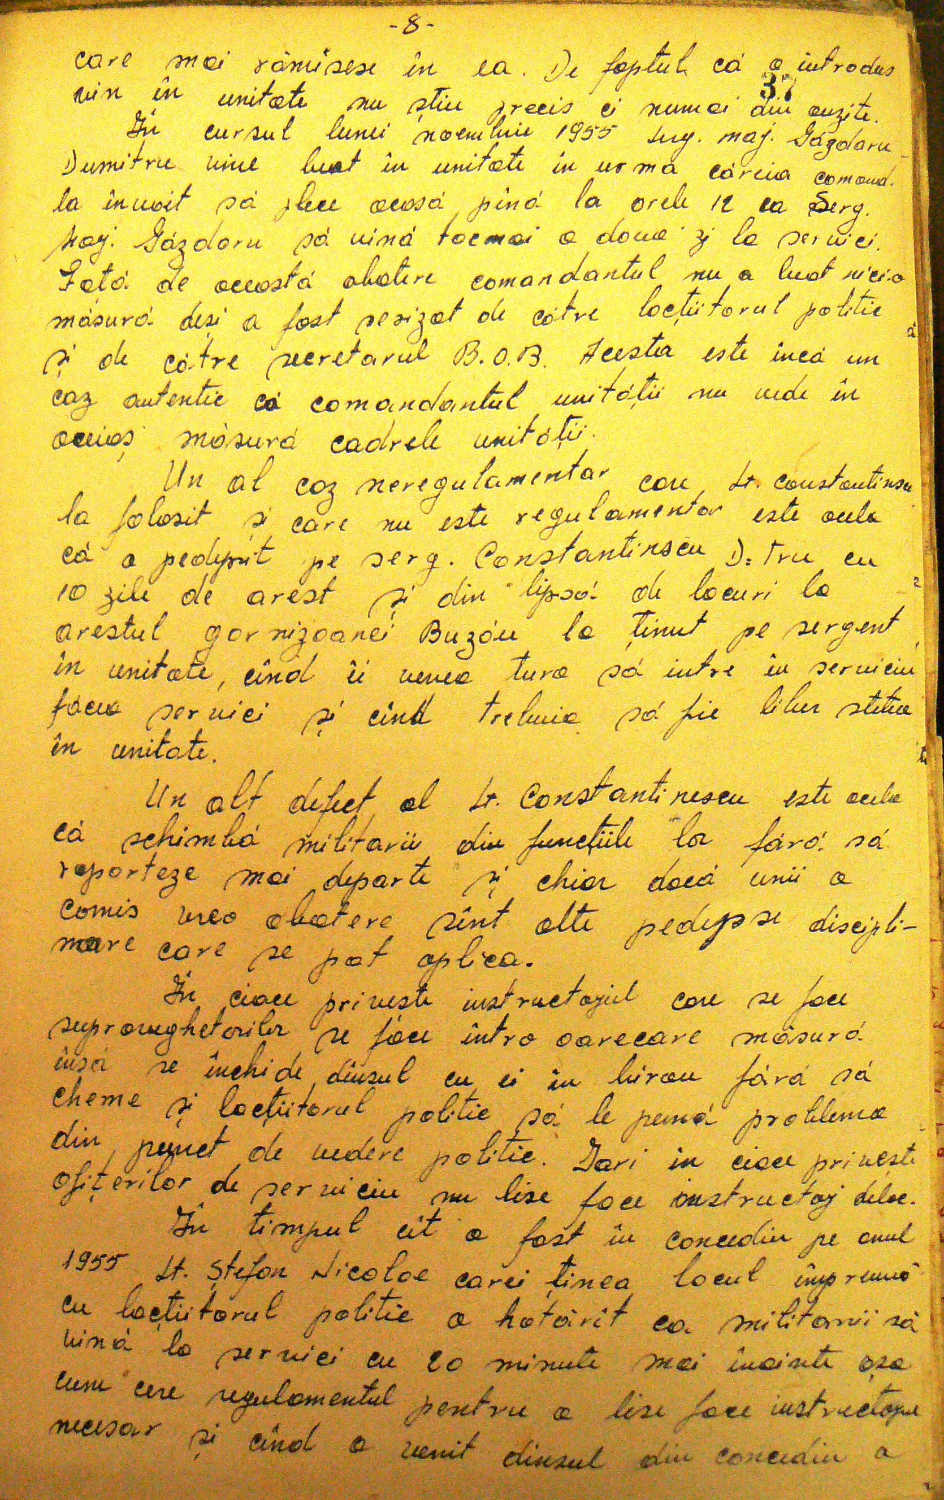 -8-
care mai rămîsese în ea. De faptul că a introdus
37
vin în unitate nu știu precis ci numai din auzite.
În cursul lunei noembrie 1955 Serg. maj. Găzdaru
Dumitru vine beat în unitate în urma căreia comand.
la învoit să plece acasă pînă la orele 12 ca Serg.
Maj. Găzdaru să vină tocmai a doua zi la servici.
Fată de această abatere comandantul nu a luat nici-o
măsură deși a fost sesizat de către locțiitorul politic
și de către secretarul B.O.B. Acesta este încă un
caz autentic că comandantul unității nu vede în
aceiaș măsură cadrele unității.
Un al caz neregulamentar care Lt. Constantinescu
la folosit și care nu este regulamentar este acela
că a pedepsit pe serg. Constantinscu D-tru cu
10 zile de arest și din lipsă de locuri la
arestul garnizoanei Buzău la ținut pe sergent
în unitate, cînd îi venea tura să intre în serviciu
făcea servici și cînd trebuia să fie liber stătea
în unitate.
Un alt defect al Lt. Constantinescu este acela
că schimbă militarii din funcțiile lor fără să
raporteze mai departe și chiar dacă unii a
comis vreo abatere sînt alte pedepse discipli-
nare care se pot aplica.
În ceiace privește instructajul care se face
supraveghetorilor se face întro oarecare măsură
însă se închide dînsul cu ei în birou fără să
cheme și locțiitorul politic să le pună problema
din punct de vedere politic. Iari in ceiace privește
ofițerilor de serviciu nu lise face instructaj deloc.
În timpul cît a fost în concediu pe anul
1955 Lt. Ștefan Nicolae carei ținea locul împreună
cu locțiitorul politic a hotărît ca militarii să
vină la servici cu 20 minute mai înainte așa
cum cere regulamentul pentru a lise face instructajul
necesar și cînd a venit dînsul din concediu a